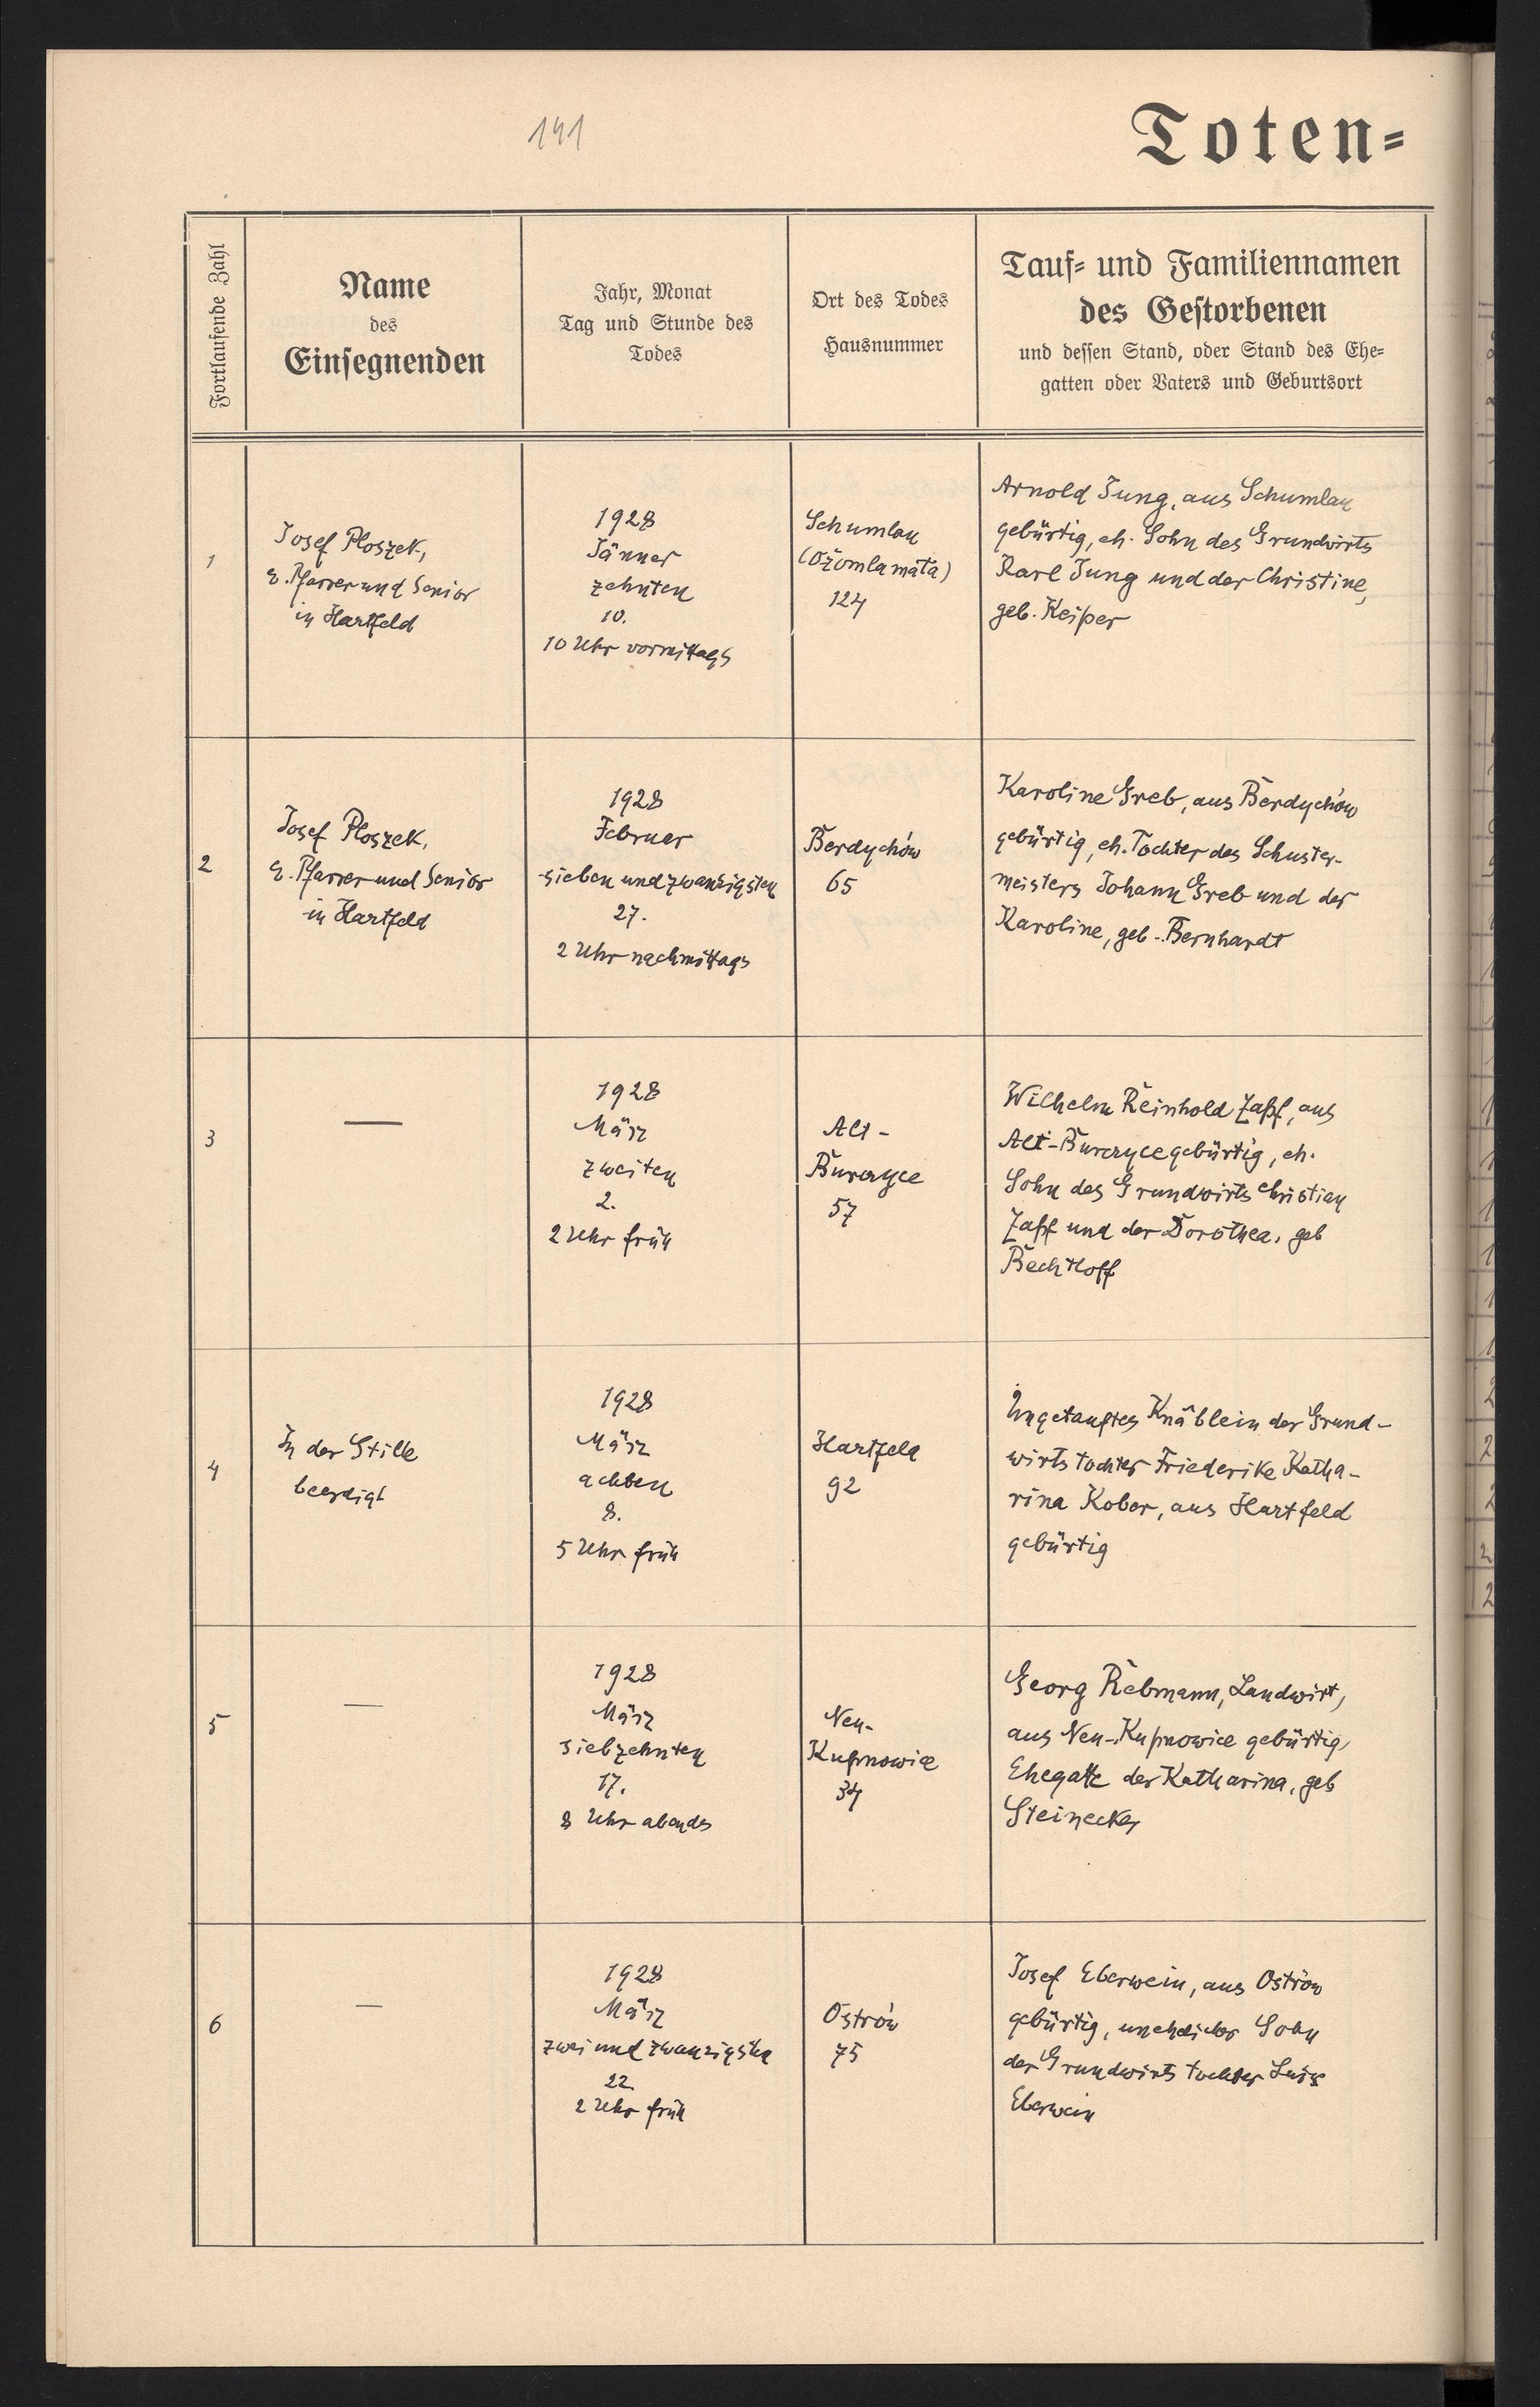 141
Toten=
Fortlaufende Zahl
Name
des
Einsegnenden
Jahr, Monat
Tag und Stunde des
Todes
Ort des Todes
Hausnummer
Tauf= und Familiennamen
des Gestorbenen
und dessen Stand, oder Stand des Ehe=
gatten oder Vaters und Geburtsort
1
Josef Ploszek,
e. Pfarrer und Senior
in Hartfeld
1928
Jänner
zehnten
10.
10 Uhr vormittags
Schumlau
(Ożomla mała)
124
Arnold Jung, aus Schumlau
gebürtig, eh. Sohn des Grundwirts
Karl Jung und der Christine,
geb. Keiper
2
Josef Ploszek,
e. Pfarrer und Senior
in Hartfeld
1928
Februar
sieben und zwanzigsten
27.
2 Uhr nachmittags
Berdychów
65
Karoline Greb, aus Berdychów
gebürtig, eh. Tochter des Schuster-
meisters Johann Greb und der
Karoline, geb. Bernhardt
3
—
1928
März
zweiten
2.
2 Uhr früh
Alt-
Burczyce
57
Wilhelm Reinhold Zapf, aus
Alt-Burczyce gebürtig, eh.
Sohn des Grundwirts Christian
Zapf und der Dorothea, geb
Bechtloff
4
In der Stille
beerdigt
1928
März
achten
8.
5 Uhr früh
Hartfeld
92
Ungetauftes Knäblein der Grund-
wirtstochter Friederike Katha-
rina Kober, aus Hartfeld
gebürtig
5
—
1928
März
siebzehnten
17.
8 Uhr abends
Neu-
Kupnowice
34
Georg Rebmann, Landwirt,
aus Neu-Kupnowice gebürtig,
Ehegatte der Katharina, geb
Steinecker
6
—
1928
März
zwei und zwanzigsten
22.
2 Uhr früh
Ostrów
75
Josef Eberwein, aus Ostrów
gebürtig, unehelicher Sohn
der Grundwirtstochter Luise
Eberwein